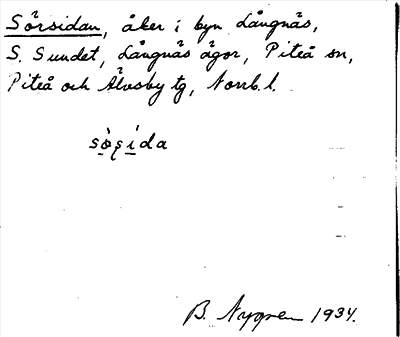 Sörsidan, åker i byn Långnäs,
S. Sundet, Långnäs ägor, Piteå sn,
Piteå och Älvsby tg, Norrb. l.
sòṣída
B. Nygren 1934.